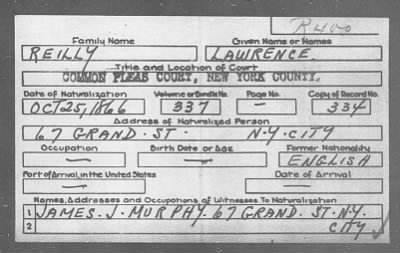 R400
Family Name Given Name or Names
REILLY LAWRENCE.
Title and Location of Court
COMMON PLEAS COURT, NEW YORK COUNTY.
Date of Naturalization Volume or Bundle No. Page No. Copy of Record No.
OCT 25, 1866 337 — 334
Address of Naturalized Person
67 GRAND · ST · N·Y·CITY
Occupation Birth Date or Age Former Nationality
— — ENGLISH
Port of Arrival in the United States Date of Arrival
— —
Names, Addresses and Occupations of Witnesses To Naturalization
1 JAMES. J. MURPHY. 67 GRAND. ST. N.Y.
2 CITY